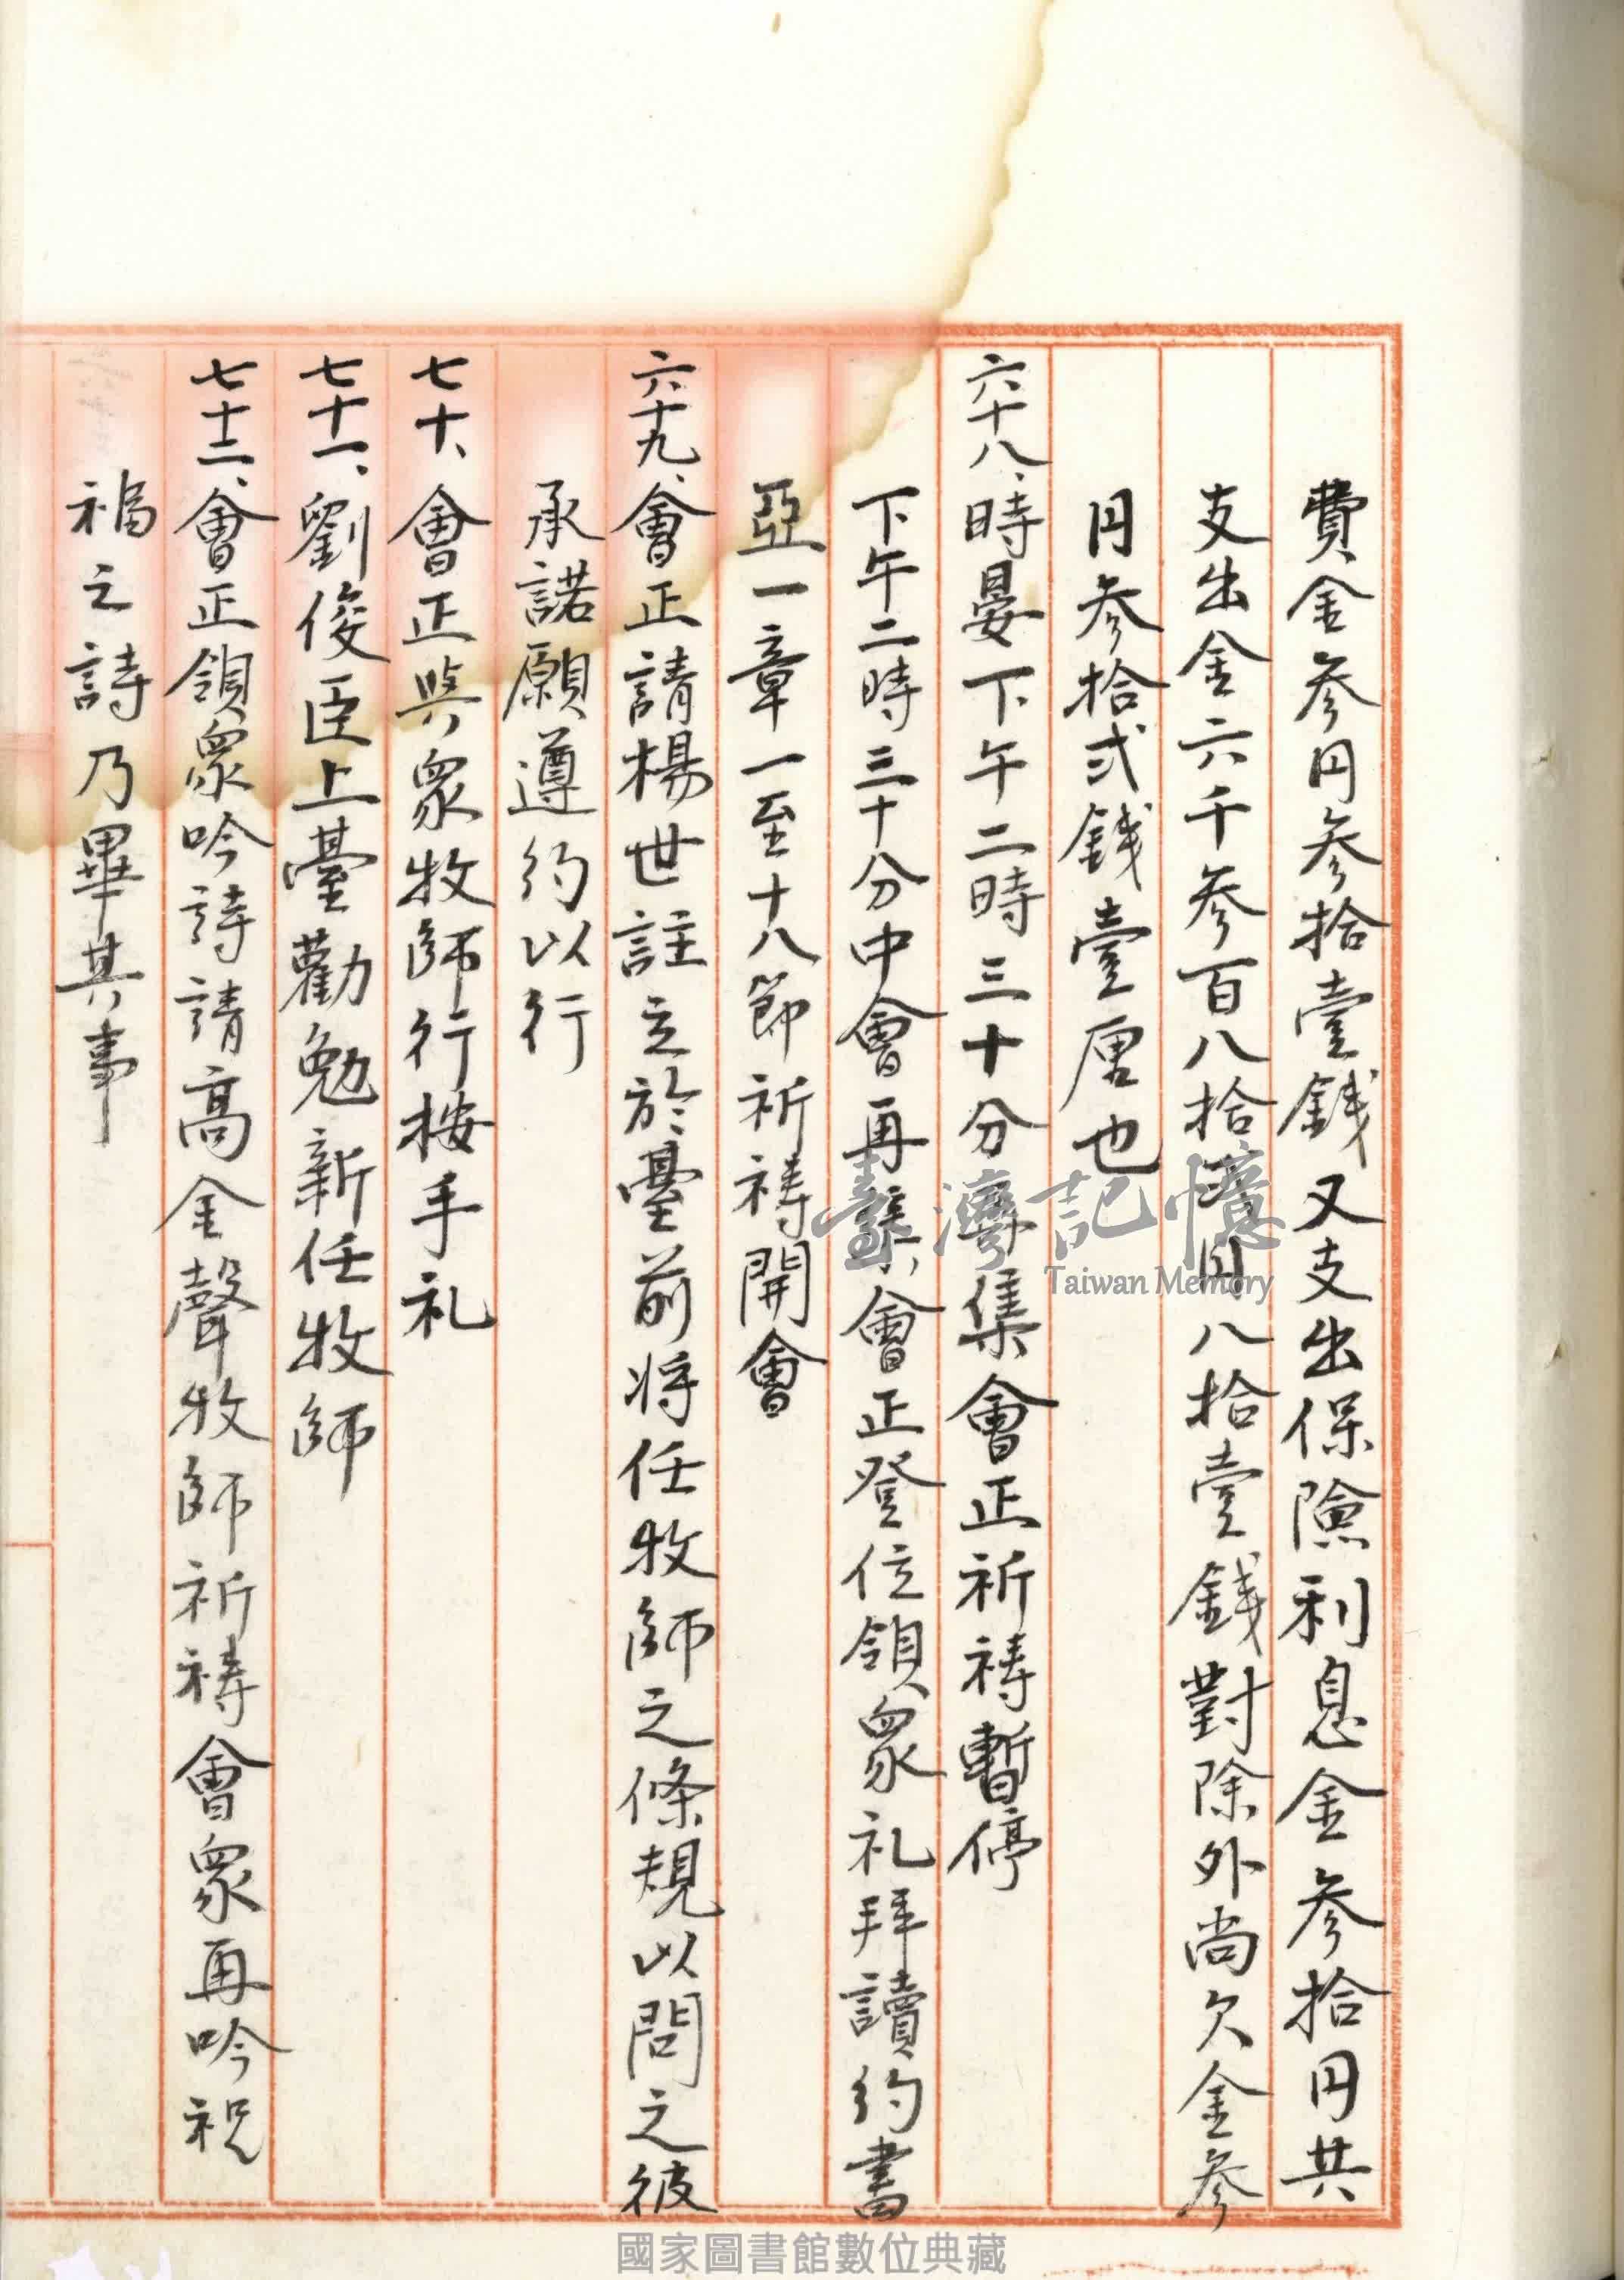 費金參円參拾壹錢又支出保險利息金參拾円共
支出金六千參百八拾円八拾壹錢對除外尚欠金參
円參拾弍錢壹厘也
六十八、時晏下午二時三十分再集會正祈祷暫停
下午二時三十分中會再集會正登位領衆礼拜讀約書
亞一章一至十八節祈祷開會
六十九、會正請楊世註立於臺前将任牧師之條規以問之彼
承諾願遵約以行
七十、會正與衆牧師行按手礼
七十一、劉俊臣上臺勸勉新任牧師
七十二、會正領衆吟詩請高金聲牧師祈祷會衆再吟祝
福之詩乃畢其事
臺灣記憶
Taiwan Memory
國家圖書館數位典藏